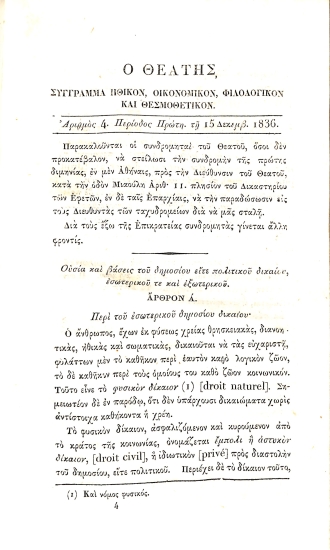 Ο ΘΕΑΤΗΣ
ΣΥΓΓΡΑΜΜΑ ΗΘΙΚΟΝ, ΟΙΚΟΝΟΜΙΚΟΝ, ΦΙΛΟΛΟΓΙΚΟΝ
ΚΑΙ ΘΕΣΜΟΘΕΤΙΚΟΝ.
Ἀριθμὸς 4. Περίοδος Πρώτη. τῇ 15 Δεκεμβ. 1836.
Παρακαλοῦνται οἱ συνδρομηταὶ τοῦ Θεατοῦ, ὅσοι δὲν
προκατέβαλον, νὰ στείλωσι τὴν συνδρομήν τῆς πρώτης
διμηνίας, ἐν μὲν Ἀθήναις, πρὸς τὴν Διεύθυνσιν τοῦ Θεατοῦ,
κατὰ τὴν ὁδὸν Μιαούλη Ἀριθ. 11. πλησίον τοῦ Δικαστηρίου
τῶν Ἐφετῶν, ἐν δὲ ταῖς Ἐπαρχίαις, νὰ τὴν παραδώσωσιν εἰς
τοὺς Διευθυντὰς τῶν ταχυδρομείων διὰ νὰ μᾶς σταλῇ.
Διὰ τοὺς ἔξω τῆς Ἐπικρατείας συνδρομητὰς γίνεται ἄλλη
φροντίς.
Οὐσία καὶ βάσεις τοῦ δημοσίου εἴτε πολιτικοῦ δικαίου,
ἐσωτερικοῦ τε καὶ ἐξωτερικοῦ.
ἌΡΘΡΟΝ Ά.
Περὶ τοῦ ἐσωτερικοῦ δημοσίου δικαίου·
Ὁ ἄνθρωπος, ἔχων ἐκ φύσεως χρείας θρησκειακὰς, διανοη-
τικὰς, ἠθικὰς καὶ σωματικὰς, δικαιοῦται νὰ τὰς εὐχαριστῇ,
φυλάττων μὲν τὸ καθῆκον περὶ ἑαυτὸν καθὸ λογικὸν ζῶον,
τὸ δὲ καθῆκον περὶ τοὺς ὁμοίους του καθὸ ζῶον κοινωνικόν.
Τοῦτο εἶνε τὸ φυσικὸν δίκαιον (1) [droit naturel]. Ση-
μειωτέον δὲ ἐν παρόδῳ, ὅτι δὲν ὑπάρχουσι δικαιώματα χωρὶς
ἀντίστοιχα καθήκοντα ἢ χρέη.
Τὸ φυσικὸν δίκαιον, ἀσφαλιζόμενον καὶ κυρούμενον ἀπὸ
τὸ κράτος τῆς κοινωνίας, ὀνομάζεται ἔμπολι ἢ ἀστυκὸν
δίκαιον, [droit civil], ἢ ἰδιωτικὸν [privé] πρὸς διαστολὴν
τοῦ δημοσίου, εἴτε πολιτικοῦ. Περιέχει δὲ τὸ δίκαιον τοῦτο,
(1) Καὶ νόμος φυσικός.
4